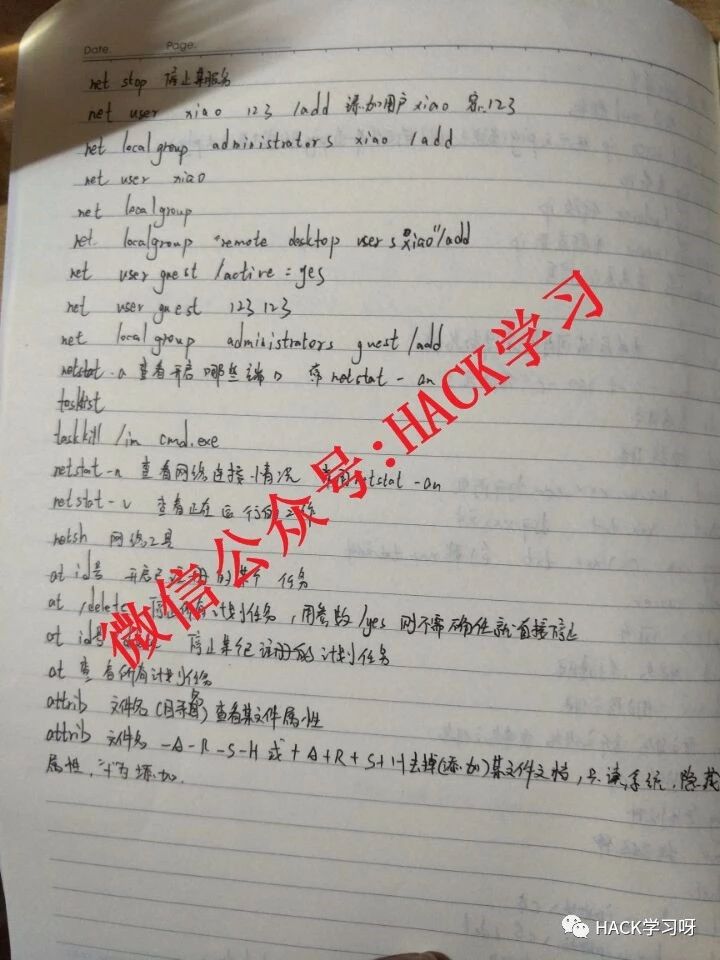 Date. Page.
net stop 停止某服务
net user xiao 123 /add 添加用户 xiao 密:123
net localgroup administrators xiao /add
net user xiao
net localgroup
net localgroup "remote desktop users" xiao" /add
net user guest /active=yes
net user guest 123123
net localgroup administrators guest /add
netstat -a 查看开启哪些端口 常 netstat -an
tasklist
taskkill /im cmd.exe
netstat -n 查看网络连接情况 常用 netstat -an
netstat -v 查看正在运行的工作
netsh 网络工具
at id号 开启已注册的某个 任务
at /delete 停止所有计划任务,用参数 /yes 则不需确任就直接停止
at id号 停止某个已注册的计划任务
at 查看所有计划任务
attrib 文件名(目录名)查看某文件属性
attrib 文件名 -A-R-S-H 或 +A+R+S+H 去掉(添加)某文件文档,只读,系统,隐藏
属性,"+"为添加.
微信公众号:HACK学习
HACK学习呀